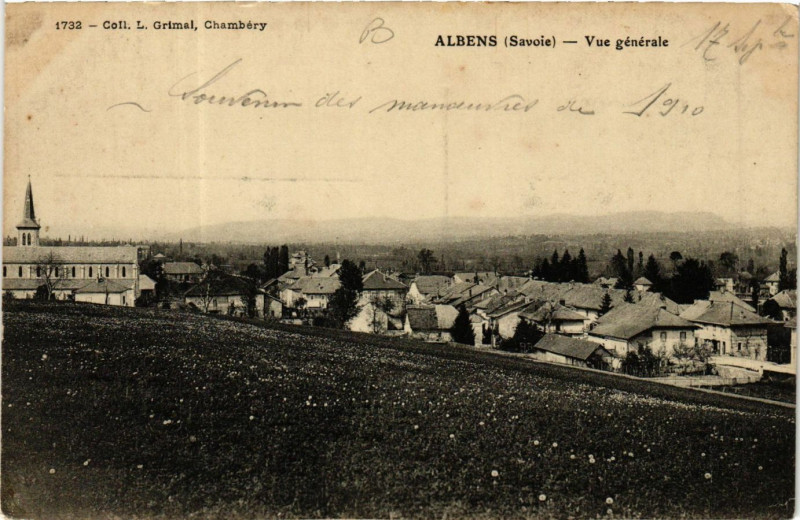 1732 – Coll. L. Grimal, Chambéry
B
ALBENS (Savoie) — Vue générale
17 Sept
Souvenir des manœuvres de 1910